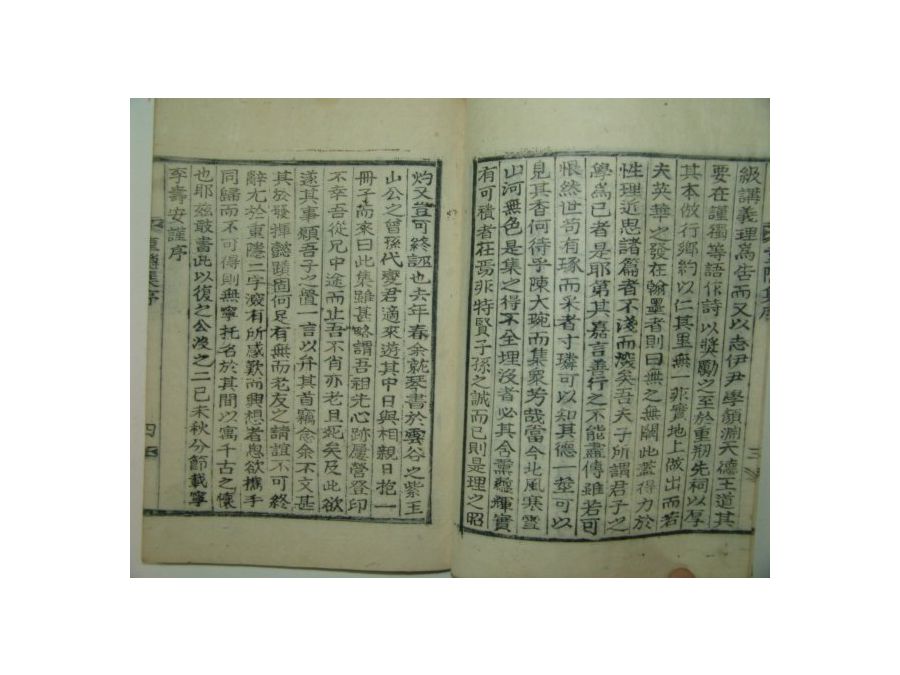 級講義理爲告而又以志伊尹學顏淵天德王道其
要在謹獨等語作詩以獎勵之至於重刱先祠以厚
其本倣行鄉約以仁其里無一非實地上做出而若
夫英華之發在翰墨者則曰無之無闕此盖得力於
性理近思諸篇者不淺而深矣吾夫子所謂君子之
學爲己者是耶第其嘉言善行之不能盡傳雖若可
恨然世苟有琢而采者寸璘可以知其德一莖可以
見其香何待乎陳大琬而集衆芳哉當今北風寒雪
山河無色是集之得不全埋沒者必其含薰韞輝實
有可積者在焉非特賢子孫之誠而已則是理之昭
灼又豈可終誣也去年春余就琴書於雲谷之紫玉
山公之曾孫代燮君適來遊其中日與相親日抱一
冊子而來曰此集雖甚略謂吾祖先心跡屢營登印
不幸吾從兄中途而止吾不肖亦老且死矣及此欲
遂其事願吾子之置一言以弁其首竊念余不文甚
其於發揮懿蹟固何足有無而老友之請誼不可終
辭尤於東隱二字深有所感歎而興想者恖欲携手
同歸而不可得則無寧托名於其間以寓千古之懷
也耶玆敢書此以復之公後之二己未秋分節載寧
李壽安謹序
四
三